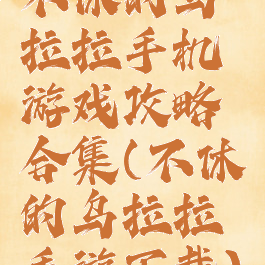 不休的乌
拉拉手机
游戏攻略
合集(不休
的乌拉拉
手游下载)